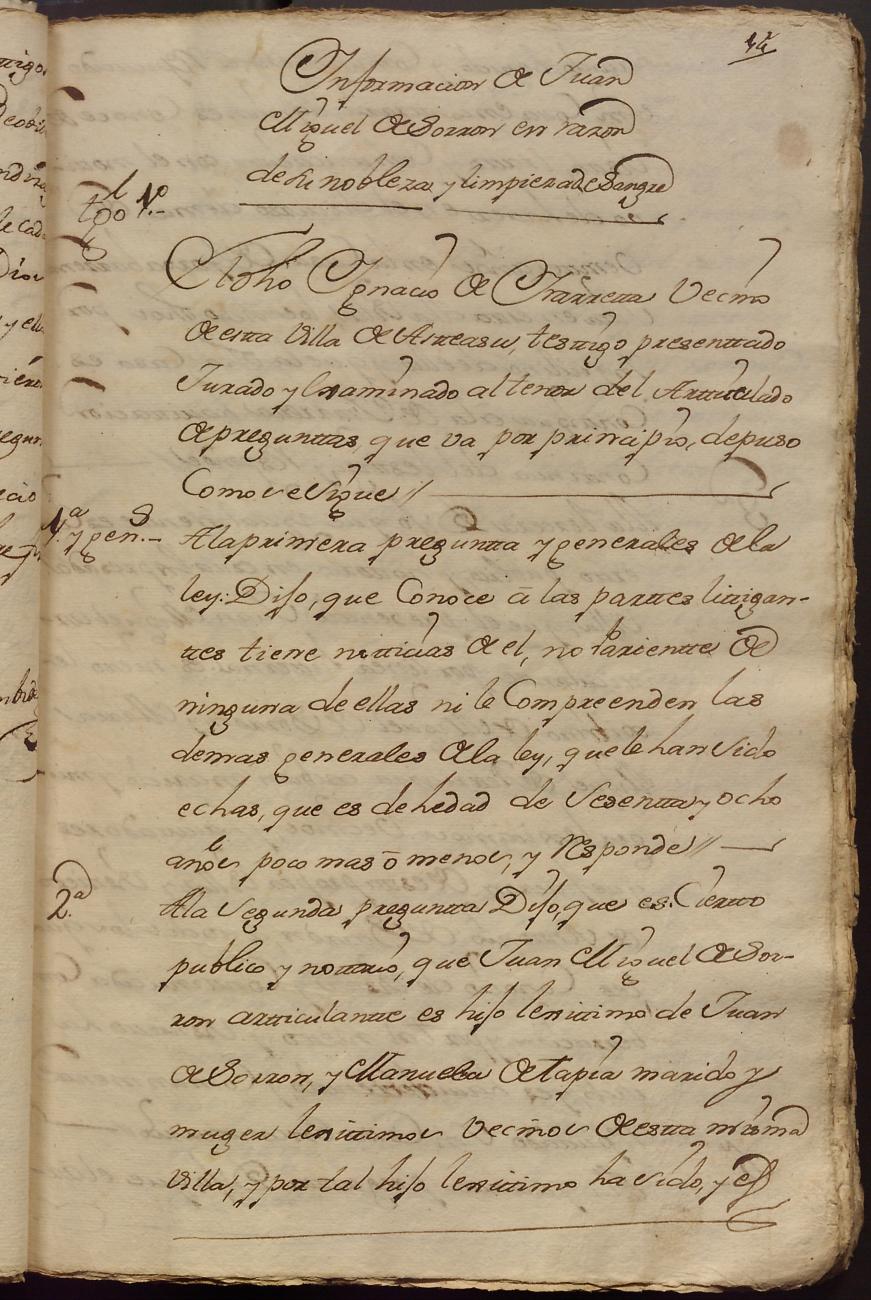 Informacion de Juan
Miguel de Sorron en razon
de su nobleza y limpieza de Sangre
tgo 1º.-
El dho Ignacio de Irarreta Vecino
de esta Villa de Asteasu, testtigo presenttado
Jurado y Examinado al tenor del Artticulado
de pregunttas, que va por principio, depuso
Como se Sigue //
1ª y gens.-
A la primera pregunta y generales de la
ley. Dijo, que Conoce â las parttes littigan-
ttes tiene notticias de el, no Parientte de
ninguna de ellas ni le Compreenden las
demas generales de la ley, que le han Sido
echas, que es de hedad de Sesentta y ocho
años poco mas ô menos, y Responde //
2ª
A la Segunda pregunta Dijo, que es Cierto
publico y nottorio, que Juan Miguel de Sor-
ron artticulantte es hijo lexittimo de Juan
de Sorron, y Manuela de Tapia marido y
muger lexittimos Vecinos de estta misma
Villa, y por tal hijo lexittimo ha sido, y es